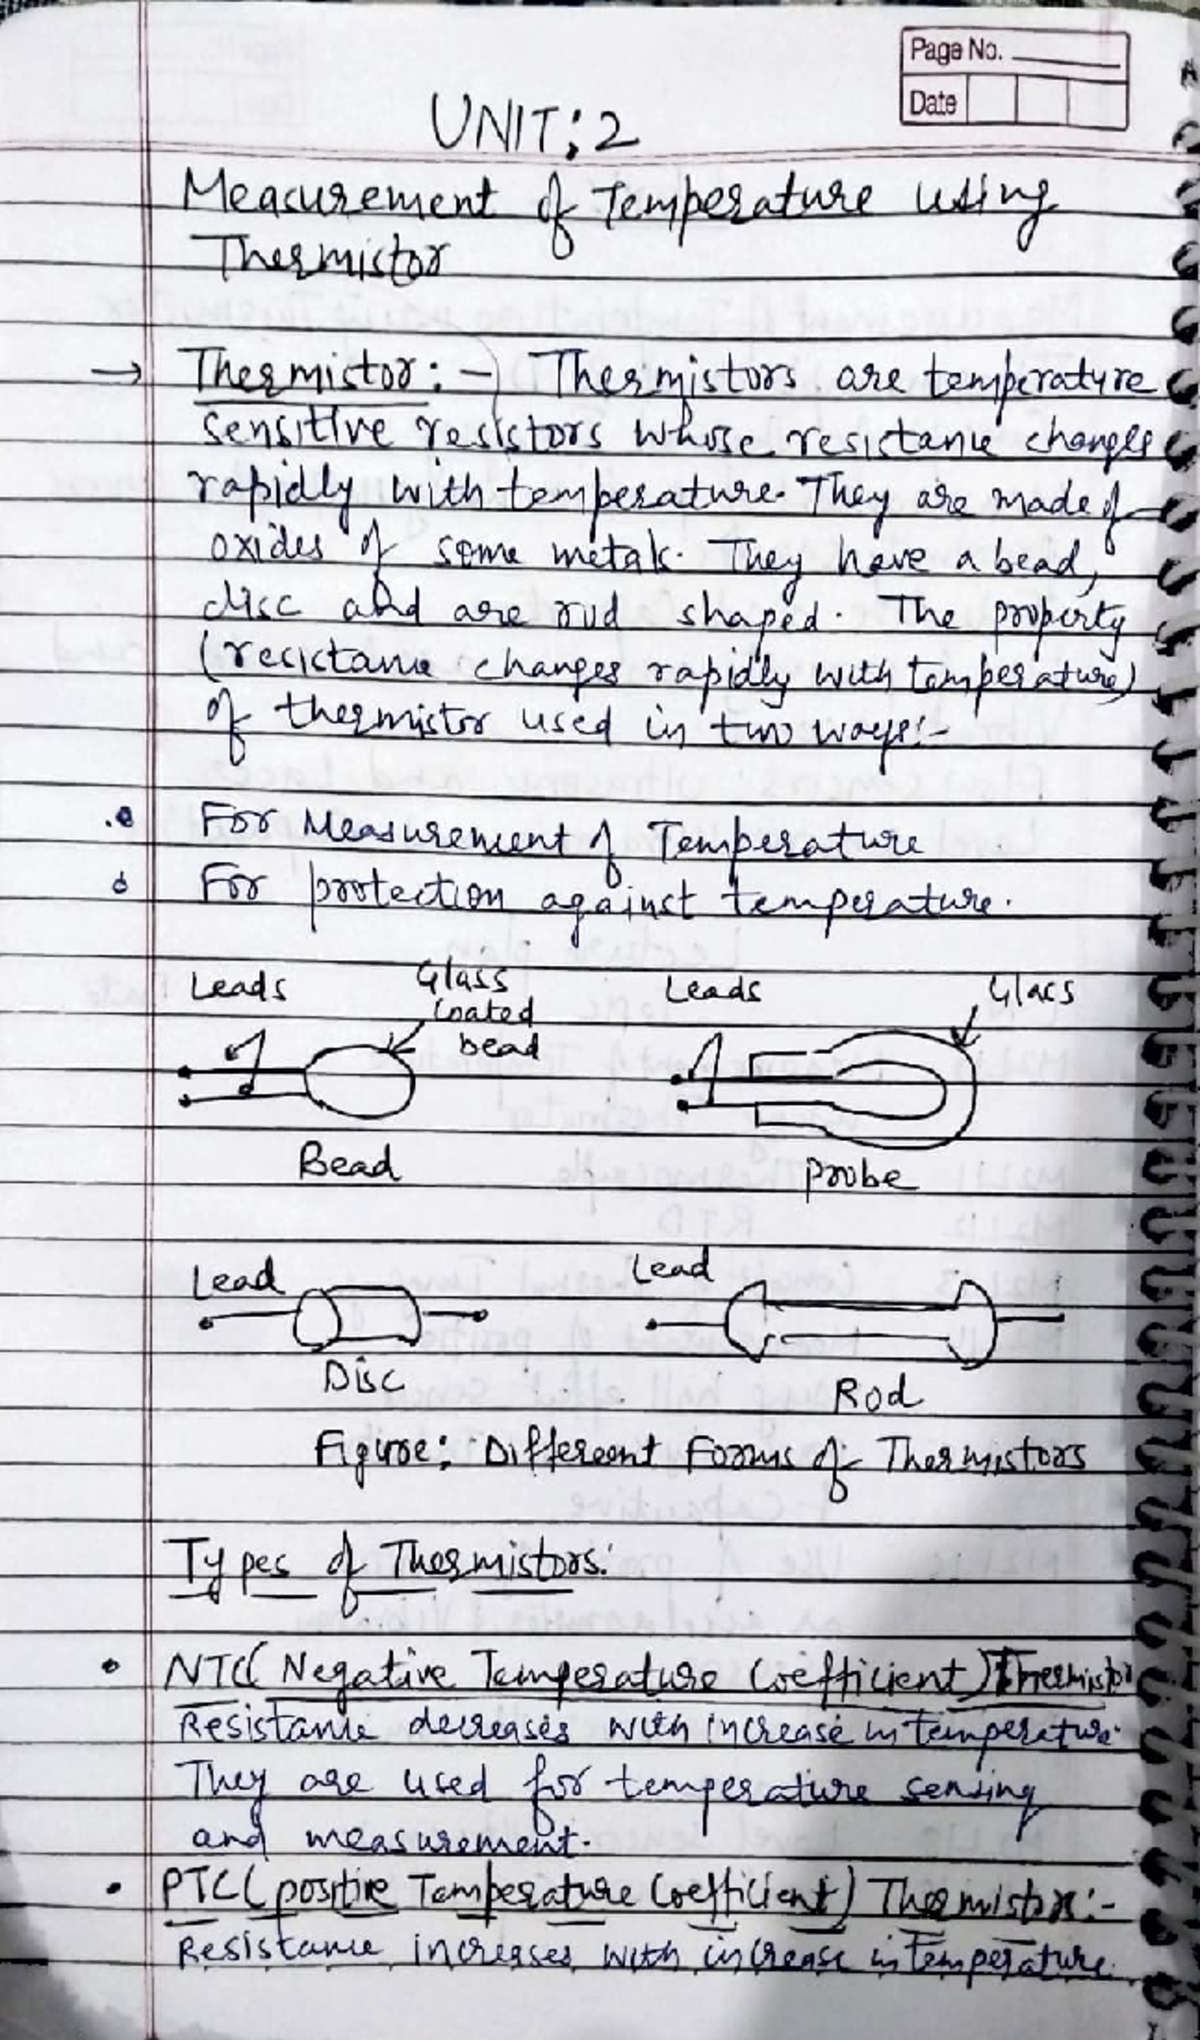 Page No.
Date
UNIT: 2
Measurement of Temperature using
Thermistor
→ Thermistor:- Thermistors are temperature
sensitive resistors whose resistance changes
rapidly with temperature. They are made of
oxides of some metals. They have a bead,
disc and are rod shaped. The property
(resistance changes rapidly with temperature)
of thermistor used in two ways:-
• For Measurement of Temperature
• For protection against temperature.
Leads Glass coated bead
Leads Glass
Bead Probe
Lead Lead
Disc Rod
Figure: Different Forms of Thermistors
Types of Thermistors:
• NTC (Negative Temperature Coefficient) Thermistor
Resistance decreases with increase in temperature.
They are used for temperature sensing
and measurement.
• PTC (positive Temperature Coefficient) Thermistor:-
Resistance increases with increase in temperature.